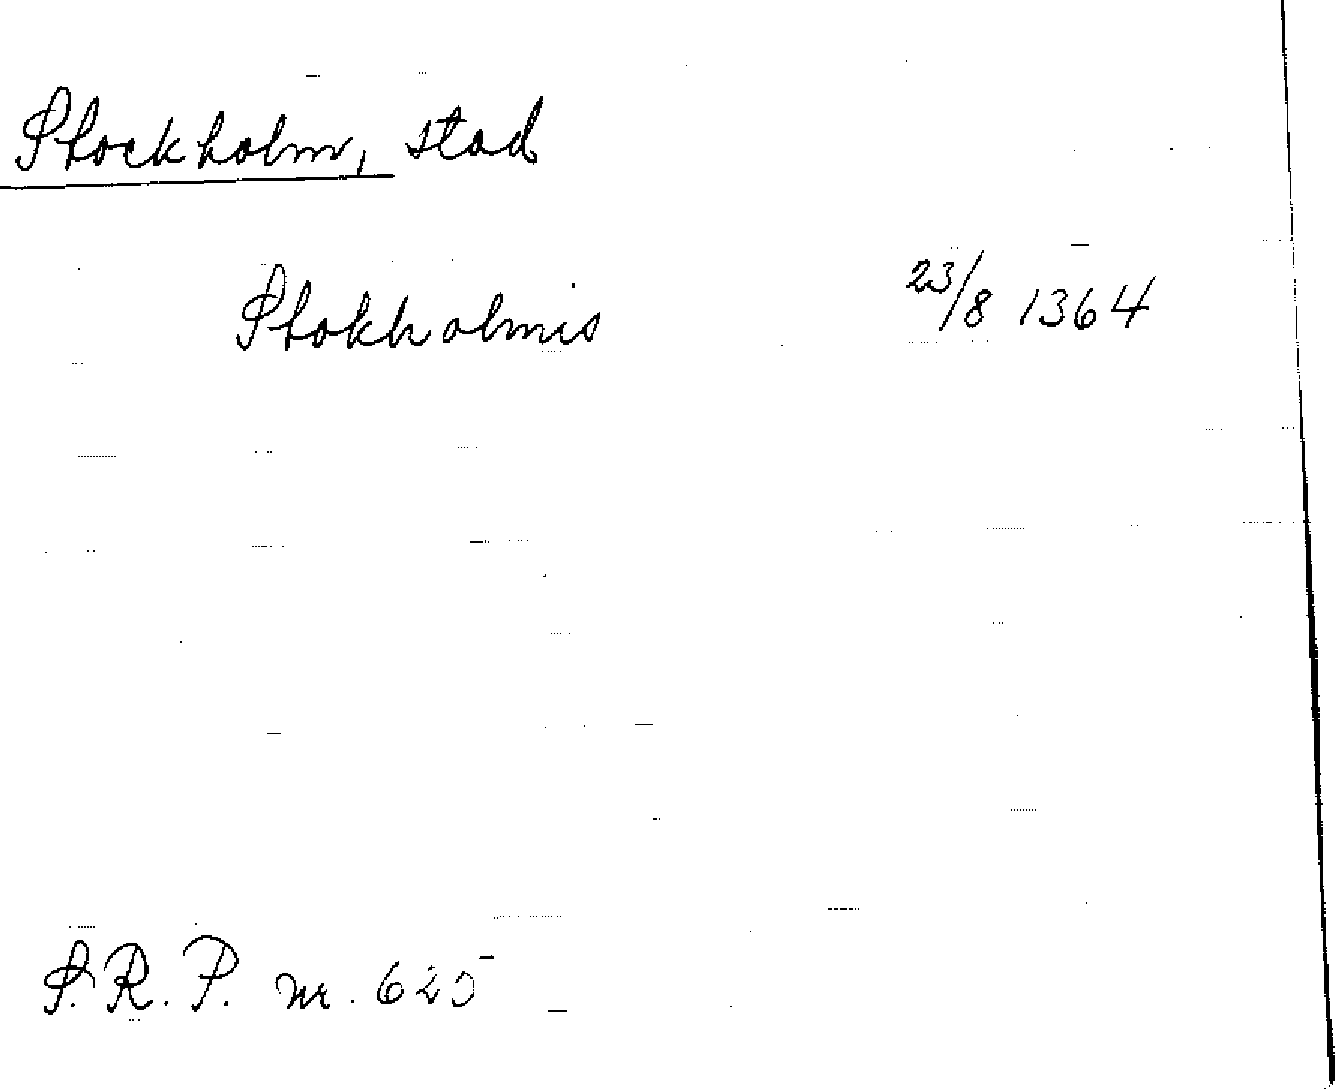 Stockholm, stad
Stokholmis 23/8 1364
S.R.P. nr. 625